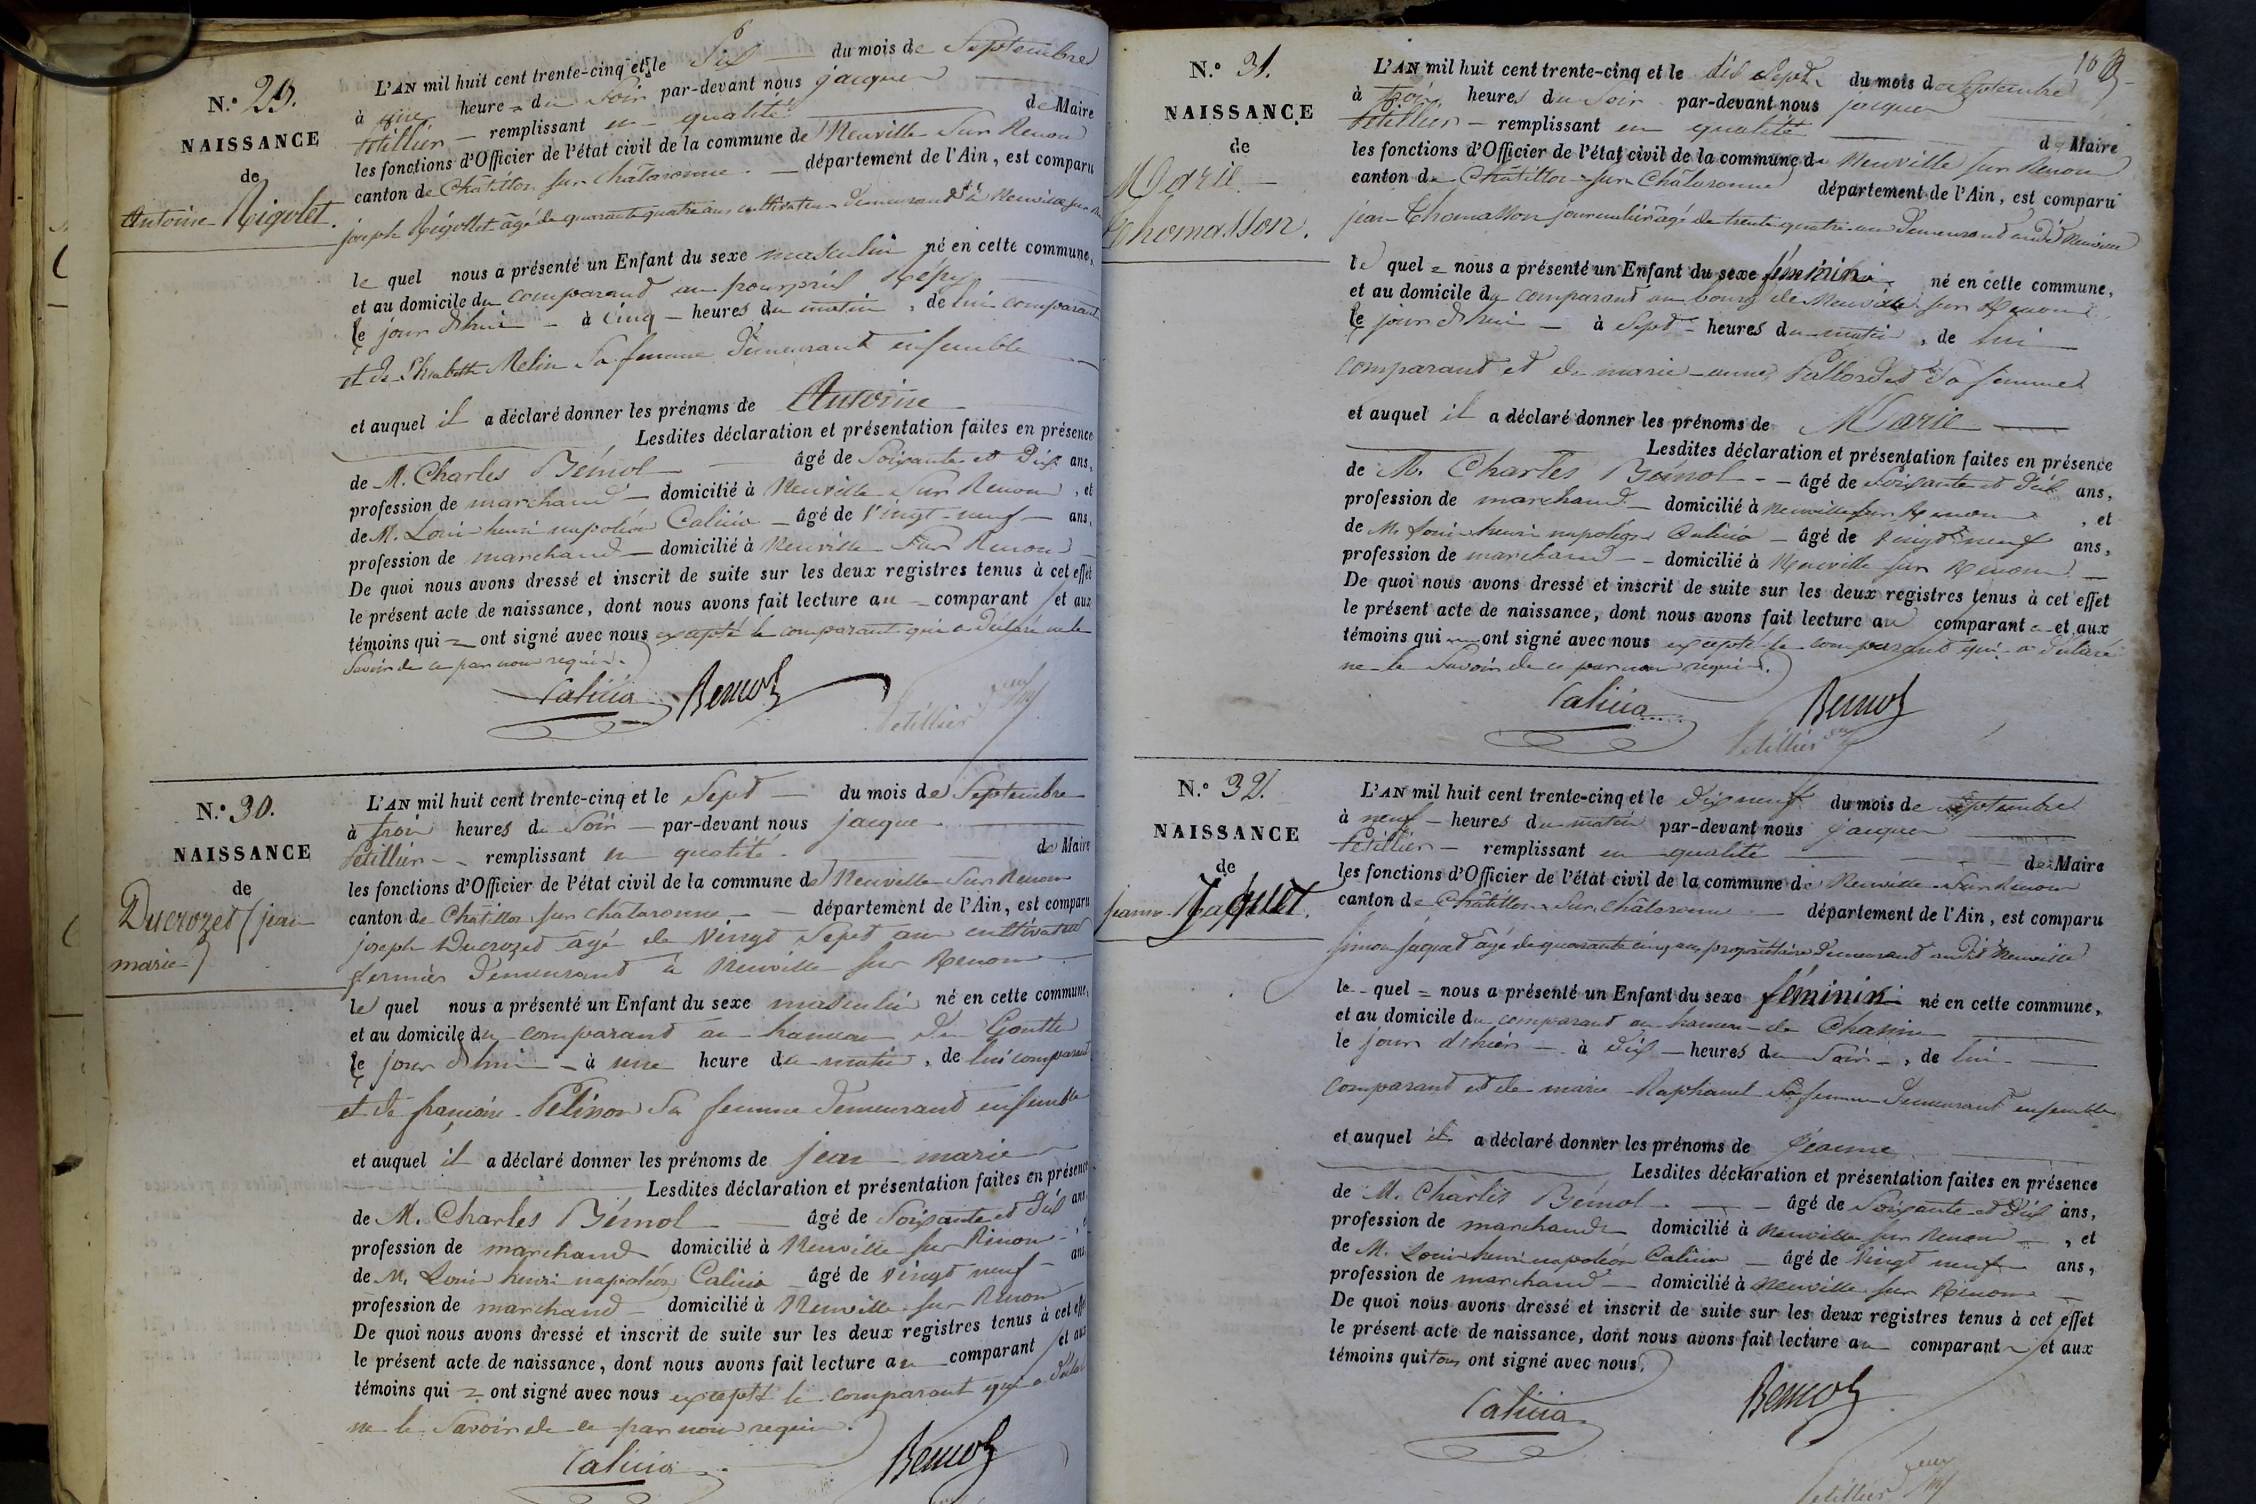 N.° 29.
NAISSANCE
de
Antoine Rigolet.
L'AN mil huit cent trente-cinq et le Six du mois de Septembre
à heures du Soir par-devant nous jacques
Petillier remplissant en qualité de Maire
les fonctions d'Officier de l'état civil de la commune de Neuville Sur Renon
canton de Châtillon sur Châlaronne département de l'Ain, est comparu
joseph Rigollet âgé de quarante quatre ans cultivateur demeurant à Neuville sur
le quel nous a présenté un Enfant du sexe masculin né en cette commune,
et au domicile du comparant au
le jour d'hui à Cinq heures du matin, de lui comparant
et de Elisabeth Melin Sa femme demeurant ensemble
et auquel il a déclaré donner les prénoms de Antoine
Lesdites déclaration et présentation faites en présence
de M. Charles Bémol âgé de Soixante et Dix ans,
profession de marchand domicilié à Neuville Sur Renon, et
de M. Louis henri napoléon Calicia âgé de Vingt-neuf ans,
profession de marchand domicilié à Neuville Sur Renon
De quoi nous avons dressé et inscrit de suite sur les deux registres tenus à cet effet
le présent acte de naissance, dont nous avons fait lecture au comparant et aux
témoins qui ont signé avec nous excepté le comparant qui a déclaré ne le
Savoir de ce par nous requis.
Calicia Bemol
Petillier
N.° 30.
NAISSANCE
de
Ducrozet (jean
marie)
L'AN mil huit cent trente-cinq et le Sept du mois de Septembre
à trois heures du Soir par-devant nous jacque
Petillier remplissant en qualité de Maire
les fonctions d'Officier de l'état civil de la commune de Neuville Sur Renon
canton de Châtillon sur Châlaronne département de l'Ain, est comparu
joseph Ducrozet âgé de Vingt Sept ans cultivateur
fermier demeurant à Neuville sur Renon
le quel nous a présenté un Enfant du sexe masculin né en cette commune,
et au domicile du comparant au hameau du Goutte
le jour d'hui à une heure du matin, de lui comparant
et de françoise Pelisson Sa femme demeurant ensemble
et auquel il a déclaré donner les prénoms de jean marie
Lesdites déclaration et présentation faites en présence
de M. Charles Bémol âgé de Soixante et Dix ans,
profession de marchand domicilié à Neuville sur Renon
de M. Louis henri napoléon Calicia âgé de Vingt neuf ans
profession de marchand domicilié à Neuville sur Renon
De quoi nous avons dressé et inscrit de suite sur les deux registres tenus à cet effet
le présent acte de naissance, dont nous avons fait lecture au comparant et aux
témoins qui ont signé avec nous excepté le comparant qui a déclaré
ne le Savoir de ce par nous requis.
Calicia Bemol
N.° 31.
NAISSANCE
de
Marie
Thomasson.
L'AN mil huit cent trente-cinq et le dix Sept du mois de Septembre
à trois heures du Soir par-devant nous jacques
Petillier remplissant en qualité de Maire
les fonctions d'Officier de l'état civil de la commune de Neuville sur Renon
canton de Châtillon sur Châlaronne département de l'Ain, est comparu
jean Thomasson journalier âgé de trente quatre ans demeurant audit Neuville
le quel nous a présenté un Enfant du sexe féminin né en cette commune,
et au domicile du comparant au bourg de Neuville sur Renon
le jour d'hui à Sept heures du matin, de lui
comparant et de marie anne Sa femme
et auquel il a déclaré donner les prénoms de Marie
Lesdites déclaration et présentation faites en présence
de M. Charles Bémol âgé de Soixante et Dix ans,
profession de marchand domicilié à Neuville sur Renon, et
de M. Louis henri napoléon Calicia âgé de Vingt neuf ans,
profession de marchand domicilié à Neuville sur Renon
De quoi nous avons dressé et inscrit de suite sur les deux registres tenus à cet effet
le présent acte de naissance, dont nous avons fait lecture au comparant et aux
témoins qui ont signé avec nous excepté le comparant qui a déclaré
ne le Savoir de ce par nous requis.
Calicia Bemol
Petillier
N.° 32.
NAISSANCE
de
jeanne Jaquet.
L'AN mil huit cent trente-cinq et le Dix neuf du mois de Septembre
à neuf heures du matin par-devant nous jacques
Petillier remplissant en qualité de Maire
les fonctions d'Officier de l'état civil de la commune de Neuville Sur Renon
canton de Châtillon Sur Châlaronne département de l'Ain, est comparu
Simon jaquet âgé de quarante cinq ans propriétaire demeurant audit Neuville
le quel nous a présenté un Enfant du sexe féminin né en cette commune,
et au domicile du comparant au hameau de
le jour d'hier à Dix heures du Soir, de lui
comparant et de marie Raphanel Sa femme demeurant ensemble
et auquel il a déclaré donner les prénoms de jeanne
Lesdites déclaration et présentation faites en présence
de M. Charles Bémol âgé de Soixante et Dix ans,
profession de marchand domicilié à Neuville sur Renon, et
de M. Louis henri napoléon Calicia âgé de Vingt neuf ans,
profession de marchand domicilié à Neuville sur Renon
De quoi nous avons dressé et inscrit de suite sur les deux registres tenus à cet effet
le présent acte de naissance, dont nous avons fait lecture au comparant et aux
témoins qui tous ont signé avec nous.
Calicia Bemol
Petillier